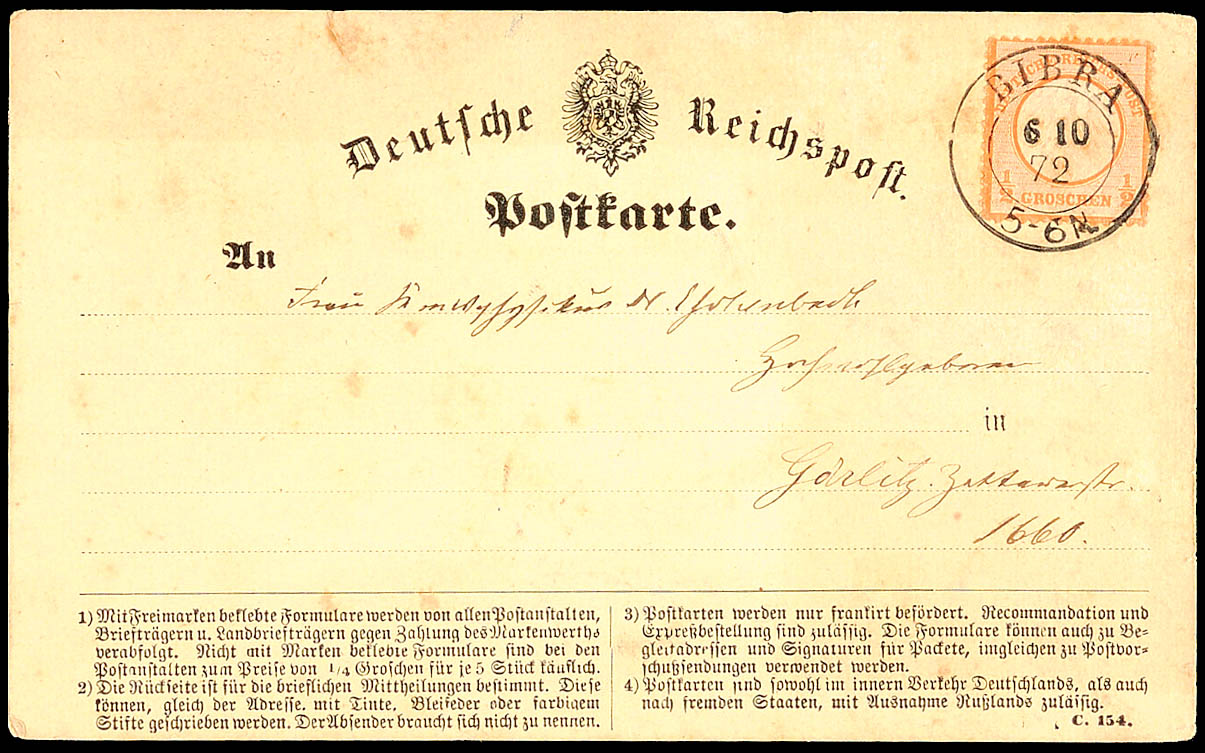 Deutsche Reichspost.
Postkarte.
DEUTSCHE REICHS-POST
½ GROSCHEN ½
BIBRA
6 10
72
5-6N
An
Frau Kreisphysikus Dr.
Hochwohlgeboren
in
Görlitz. Zittauerstr.
1660.
1) Mit Freimarken beklebte Formulare werden von allen Postanstalten,
Briefträgern u. Landbriefträgern gegen Zahlung des Markenwerths
verabfolgt. Nicht mit Marken beklebte Formulare sind bei den
Postanstalten zum Preise von ¼ Groschen für je 5 Stück käuflich.
2) Die Rückseite ist für die brieflichen Mittheilungen bestimmt. Diese
können, gleich der Adresse, mit Tinte, Bleifeder oder farbigem
Stifte geschrieben werden. Der Absender braucht sich nicht zu nennen.
3) Postkarten werden nur frankirt befördert. Recommandation und
Expreßbestellung sind zulässig. Die Formulare können auch zu Be-
gleitadressen und Signaturen für Packete, imgleichen zu Postvor-
schußsendungen verwendet werden.
4) Postkarten sind sowohl im innern Verkehr Deutschlands, als auch
nach fremden Staaten, mit Ausnahme Rußlands zulässig.
C. 154.